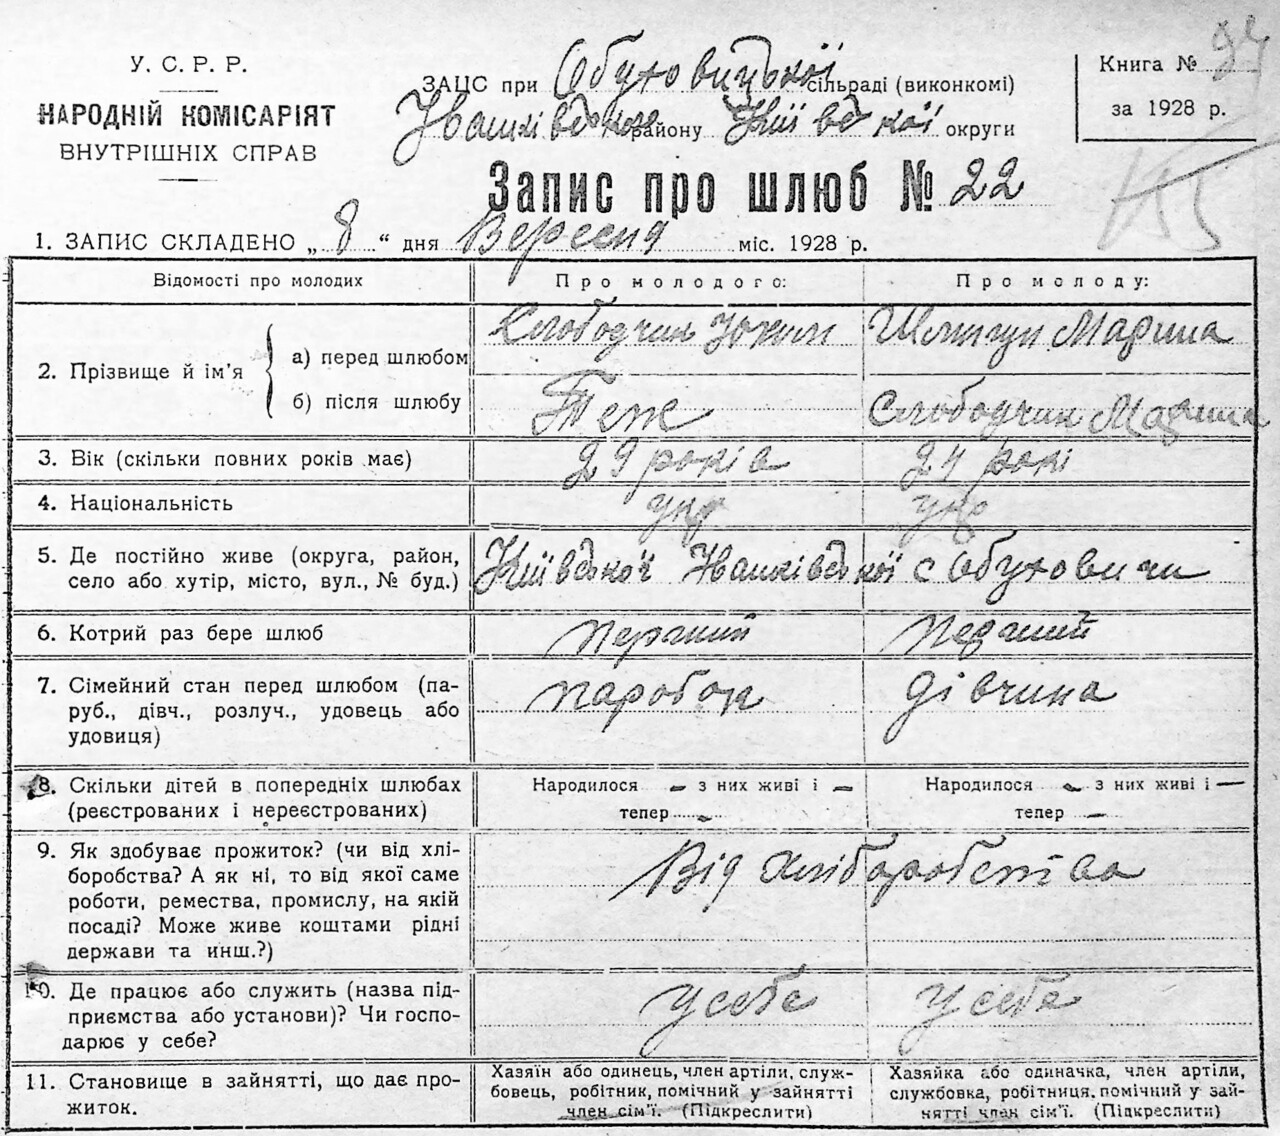 У. С. Р. Р.
НАРОДНІЙ КОМІСАРІЯТ
ВНУТРІШНІХ СПРАВ
ЗАЦС при Обуховицької сільраді (виконкомі)
Іванківського району Київської округи
Книга №
за 1928 р.
Запис про шлюб № 22
1. ЗАПИС СКЛАДЕНО „ 8 “ дня Вересня міс. 1928 р.
Відомості про молодих Про молодого: Про молоду:
2. Прізвище й ім'я
а) перед шлюбом Слободчин Юхим Марина
б) після шлюбу Теж Слободчин Марина
3. Вік (скільки повних років має) 29 років 24 рокі
4. Національність укр укр
5. Де постійно живе (округа, район, село або хутір, місто, вул., № буд.)
Київської Іванківської с Обуховичи
6. Котрий раз бере шлюб перший перший
7. Сімейний стан перед шлюбом (па-
руб., дівч., розлуч., удовець або
удовиця)
паробок дівчина
8. Скільки дітей в попередніх шлюбах
(реєстрованих і нереєстрованих)
Народилося – з них живі і –
тепер –
Народилося – з них живі і –
тепер –
9. Як здобуває прожиток? (чи від хлі-
боробства? А як ні, то від якої саме
роботи, ремества, промислу, на якій
посаді? Може живе коштами рідні
держави та инш.?)
Від хліборобства
10. Де працює або служить (назва під-
приємства або установи)? Чи госпо-
дарює у себе?
у себе у себе
11. Становище в зайнятті, що дає про-
житок.
Хазяїн або одинець, член артіли, служ-
бовець, робітник, помічний у зайнятті
член сім'ї. (Підкреслити)
Хазяйка або одиначка, член артіли,
службовка, робітниця, помічний у зай-
нятті член сім'ї. (Підкреслити)